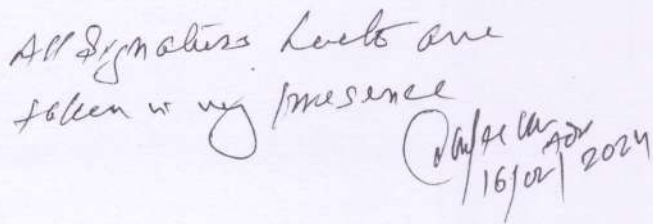 All Signatures hereto are
taken in my presence
Adv
16/02/2024